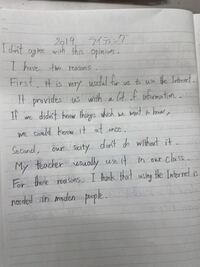 2019 ライティング
I don't agree with this opinion.
I have two reasons.
First, it is very useful for us to use the Internet.
It provides us with a lot of information.
If we didn't know things which we want to know,
we could know it at once.
Second, our society don't do without it.
My teacher usually use it in our class.
For these reasons, I think that using the Internet is
needed in modern people.